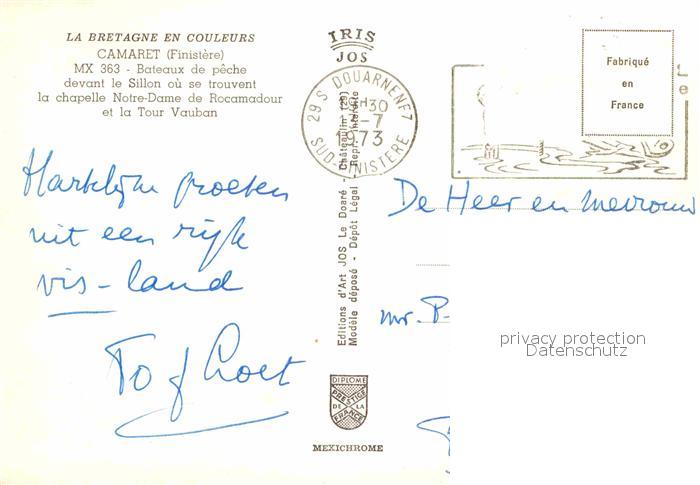 LA BRETAGNE EN COULEURS
CAMARET (Finistère)
MX 363 - Bateaux de pêche
devant le Sillon où se trouvent
la chapelle Notre-Dame de Rocamadour
et la Tour Vauban
Hartelijke groeten
uit een rijk
vis-land
IRIS
JOS
29 S DOUARNENEZ
30
-7
1973
SUD-FINISTÈRE
Editions d'Art JOS Le Doaré - Châteaulin (29)
Modèle déposé - Dépôt Légal - Repr. interdite
DIPLOME
PRESTIGE
DE LA
FRANCE
MEXICHROME
Fabriqué
en
France
De Heer en mevrouw
mr. P-
privacy protection
Datenschutz